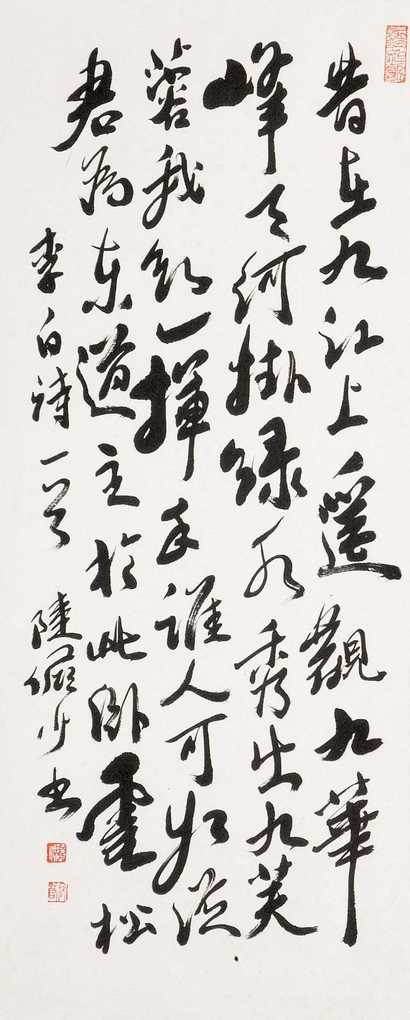 昔在九江上遙觀九華
峰天河掛綠水秀出九芙
蓉我欲一揮手誰人可相從
君為東道主於此臥雲松
李白詩一首 陸儼少書